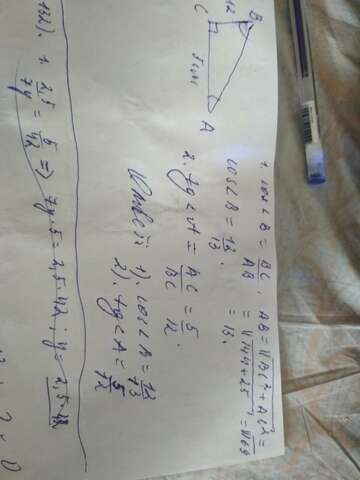 B
12
C
5 см
A
1. cos∠B = BC/AB. AB = √BC² + AC² =
= √144+25 = √169
= 13.
cos∠B = 12/13.
2. tg∠A = AC/BC = 5/12.
Ответ: 1). cos∠A = 12/13
2). tg∠A = 5/12
132). 1. 2,5/7y = 5/42 => 7y·5 = 2,5·42; y =